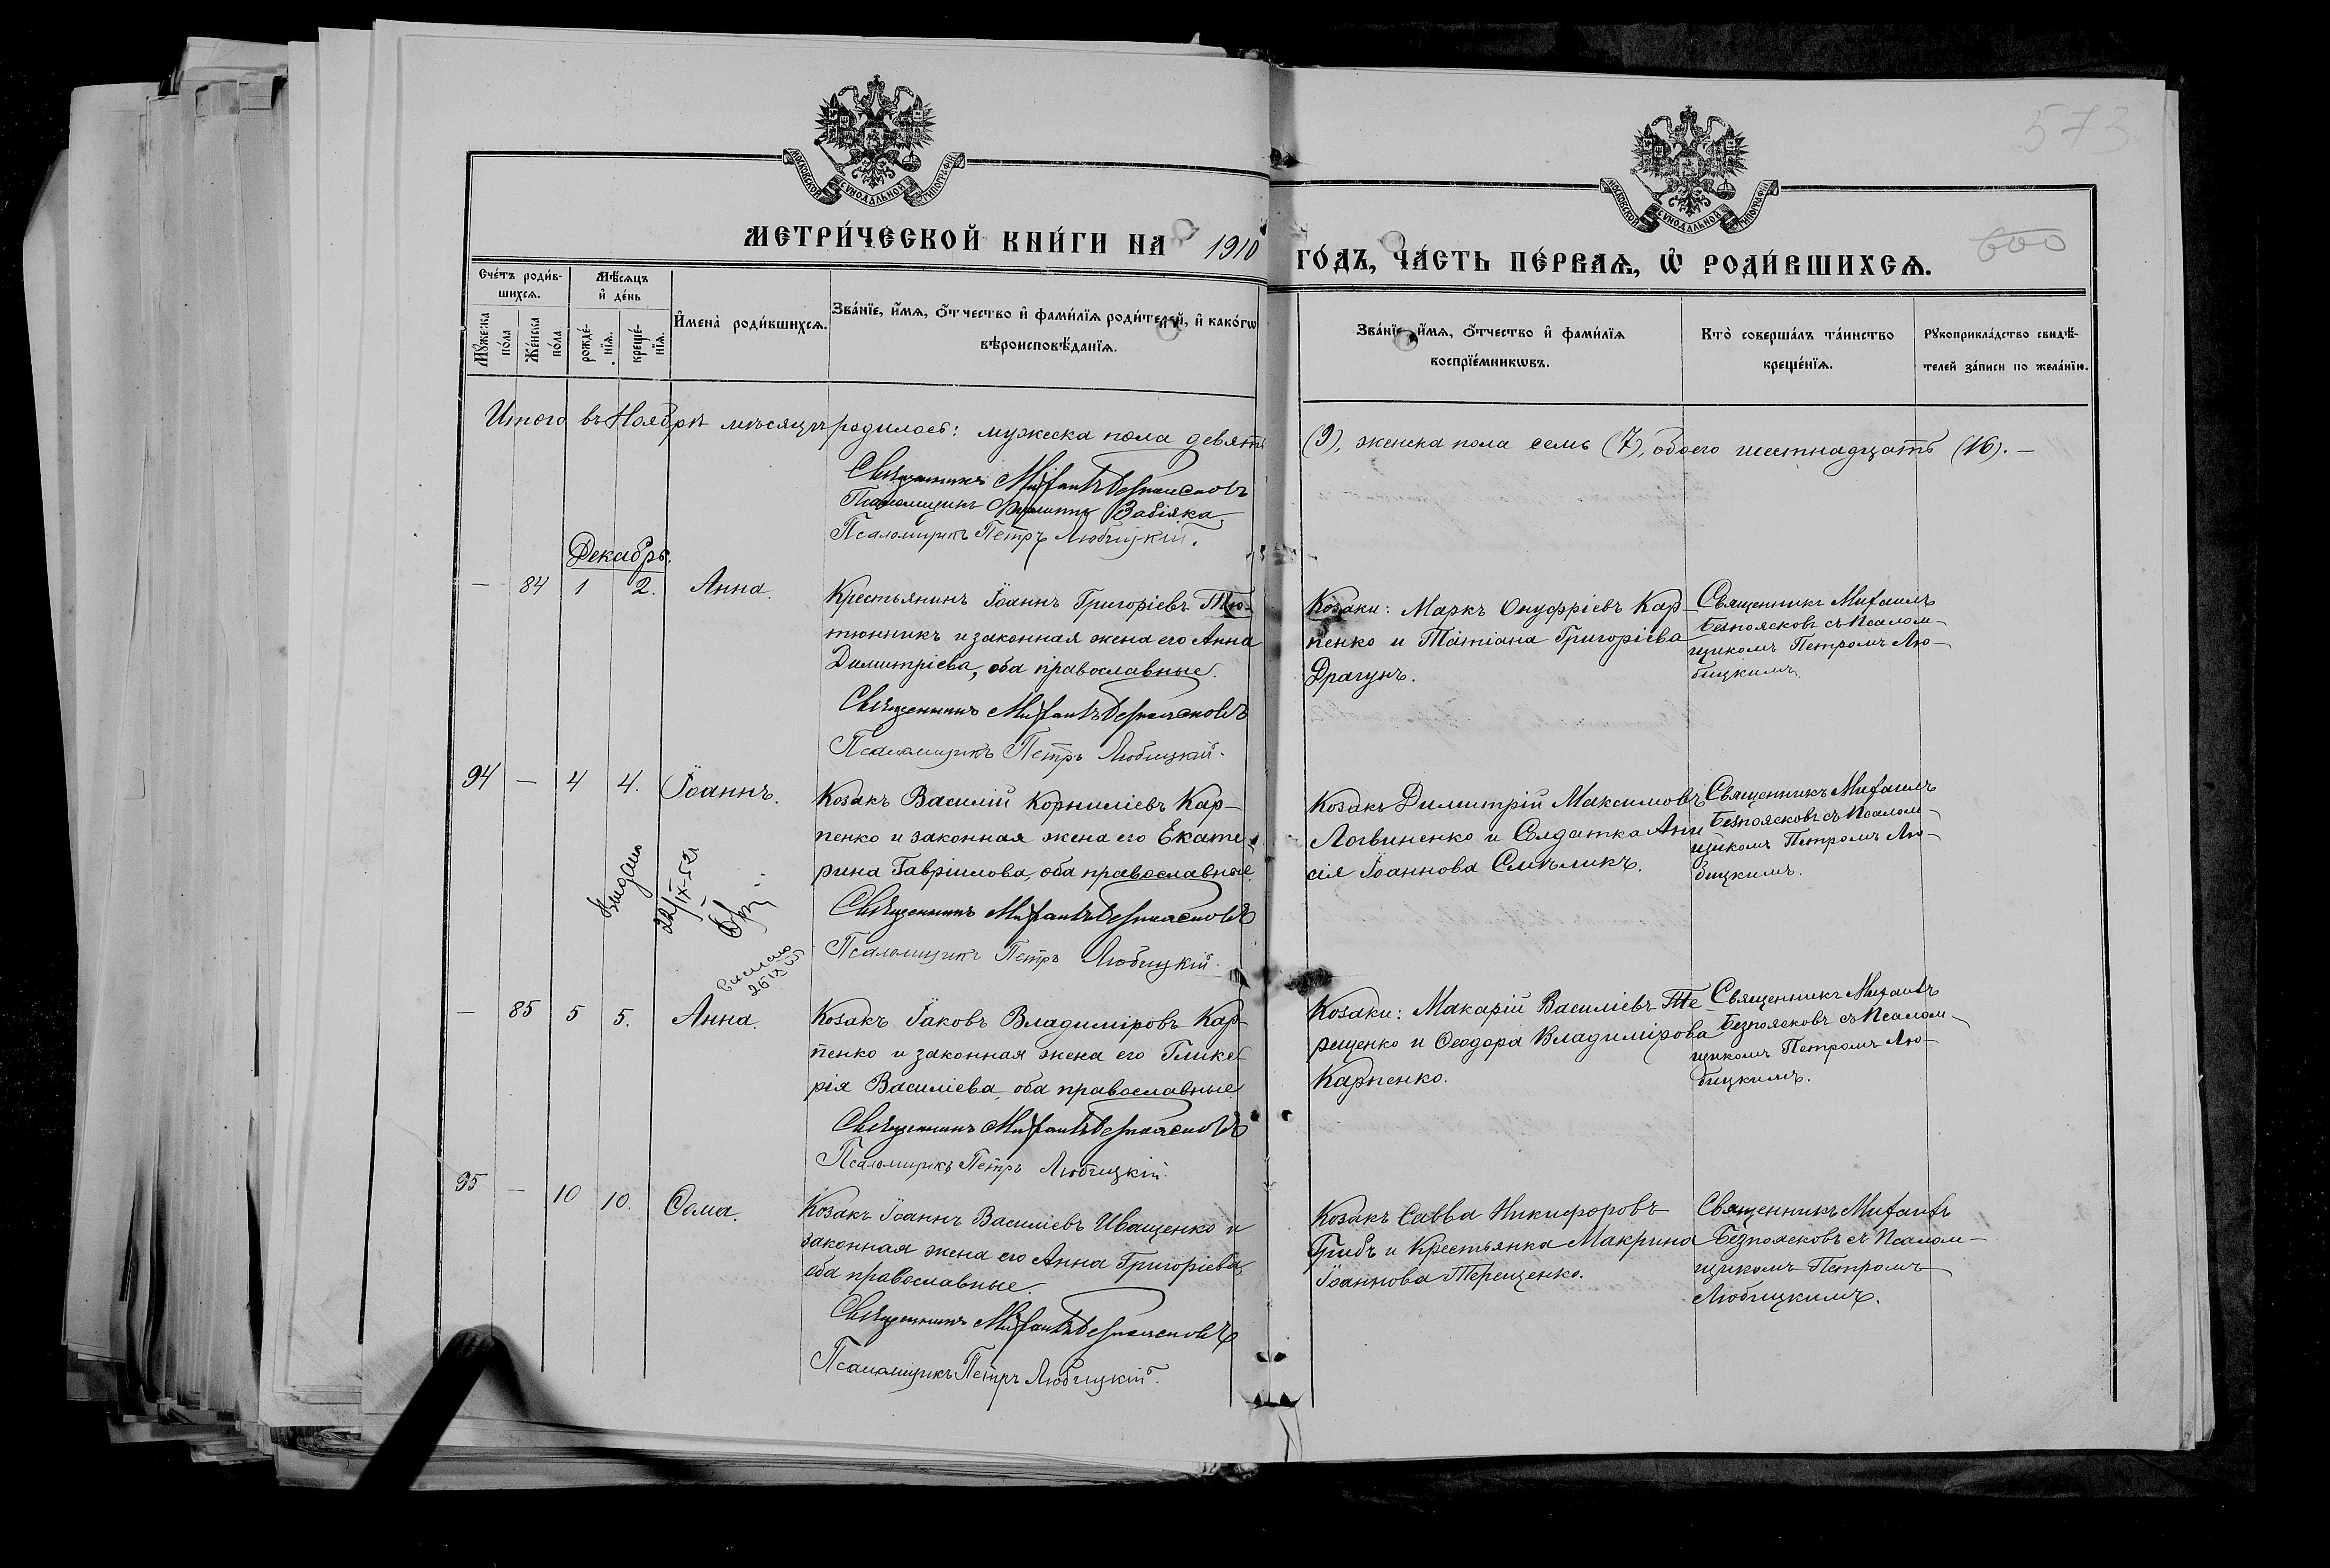 573
600
МОСКОВСКОЙ СѴНОДАЛЬНОЙ ТИПОГРАФІИ
МОСКОВСКОЙ СѴНОДАЛЬНОЙ ТИПОГРАФІИ
МЕТРИ́ЧЕСКОЙ КНИ́ГИ НА 1910 ГО́ДЪ, ЧА́СТЬ ПЕ́РВАѦ, Ѡ҆ РОДИ́ВШИХСѦ.
Сче́тъ роди́в-
шихсѧ.
Мѣ́сѧцъ
и҆ де́нь
Мꙋ́жеска
по́ла
Же́нска
по́ла
рожде́-
нїѧ.
креще́-
нїѧ.
И҆мена̀ роди́вшихсѧ.
Зва́нїе, и҆́мѧ, ѻ҆́тчество и҆ фами́лїѧ роди́телей, и҆ како́гѡ
вѣроисповѣ́данїѧ.
Зва́нїе, и҆́мѧ, ѻ҆́тчество и҆ фами́лїѧ
воспрїе́мникѡвъ.
Кто̀ соверша́лъ та́инство
креще́нїѧ.
Рꙋкоприкла́дство свидѣ́-
телей за́писи по жела́нїю.
Итого въ Ноябрѣ мѣсяцѣ родилось: мужеска пола девять (9), женска пола семь (7), обоего шестнадцать (16). —
Священникъ Михаилъ Безпоясковъ
Псаломщикъ Филиппъ Забіяка
Псаломщикъ Петръ Любицкій.
Декабрь.
— 84 1 2. Анна.
Крестьянинъ Іоаннъ Григоріевъ Тю-
тюнникъ и законная жена его Анна
Димитріева, оба православные.
Священникъ Михаилъ Безпоясковъ
Псаломщикъ Петръ Любицкій.
Козаки: Маркъ Онуфріевъ Кар-
пенко и Татіана Григоріева
Драгунъ.
Священникъ Михаилъ
Безпоясковъ съ Псалом-
щикомъ Петромъ Лю-
бицкимъ.
94 — 4 4. Іоаннъ.
Козакъ Василій Корниліевъ Кар-
пенко и законная жена его Екате-
рина Гавріилова, оба православные.
Священникъ Михаилъ Безпоясковъ
Псаломщикъ Петръ Любицкій.
Козакъ Димитрій Максимовъ
Логвиненко и Солдатка Ани
сія Іоаннова Смѣликъ.
Священникъ Михаилъ
Безпоясковъ съ Псалом-
щикомъ Петромъ Лю-
бицкимъ.
Видано
22/IX-52г
— 85 5 5. Анна.
Козакъ Іаковъ Владиміровъ Кар-
пенко и законная жена его Глике-
рія Василіева, оба православные
Священникъ Михаилъ Безпоясковъ
Псаломщикъ Петръ Любицкій.
Козаки: Макарій Василіевъ Те-
рещенко и Ѳеодора Владимірова
Карпенко.
Священникъ Михаилъ
Безпоясковъ съ Псалом-
щикомъ Петромъ Лю-
бицкимъ.
95 — 10 10. Ѳома.
Козакъ Іоаннъ Василіевъ Иващенко и
законная жена его Анна Григоріева,
оба православные.
Священникъ Михаилъ Безпоясковъ
Псаломщикъ Петръ Любицкій.
Козакъ Савва Никифоровъ
Грибъ и Крестьянка Макрина
Іоаннова Терещенко.
Священникъ Михаилъ
Безпоясковъ съ Псалом-
щикомъ Петромъ
Любицкимъ.